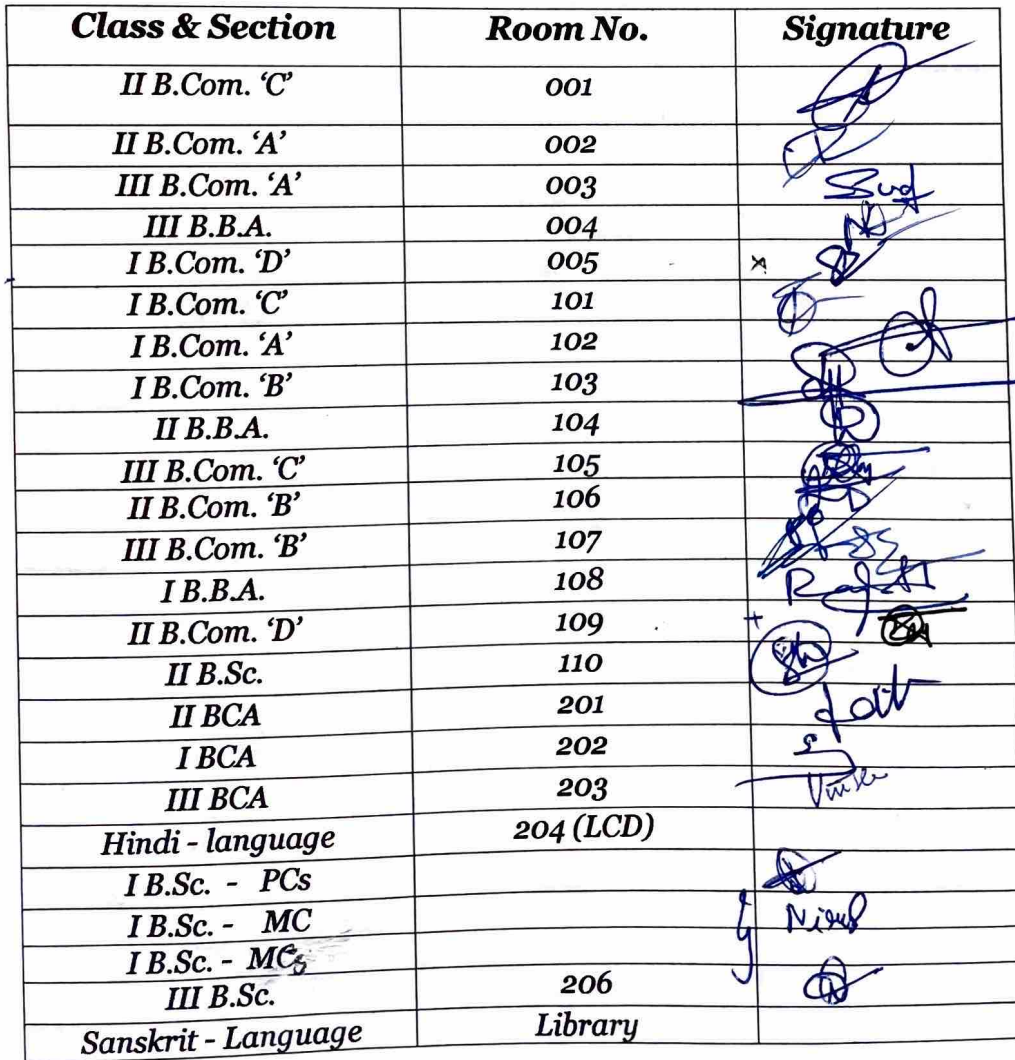 Class & Section Room No. Signature
II B.Com. ‘C’ 001
II B.Com. ‘A’ 002
III B.Com. ‘A’ 003
III B.B.A. 004
I B.Com. ‘D’ 005 x
I B.Com. ‘C’ 101
I B.Com. ‘A’ 102
I B.Com. ‘B’ 103
II B.B.A. 104
III B.Com. ‘C’ 105
II B.Com. ‘B’ 106
III B.Com. ‘B’ 107
I B.B.A. 108
II B.Com. ‘D’ 109 +
II B.Sc. 110
II BCA 201
I BCA 202
III BCA 203
Hindi - language 204 (LCD)
I B.Sc. - PCs
I B.Sc. - MC
I B.Sc. - MCs
III B.Sc. 206
Sanskrit - Language Library